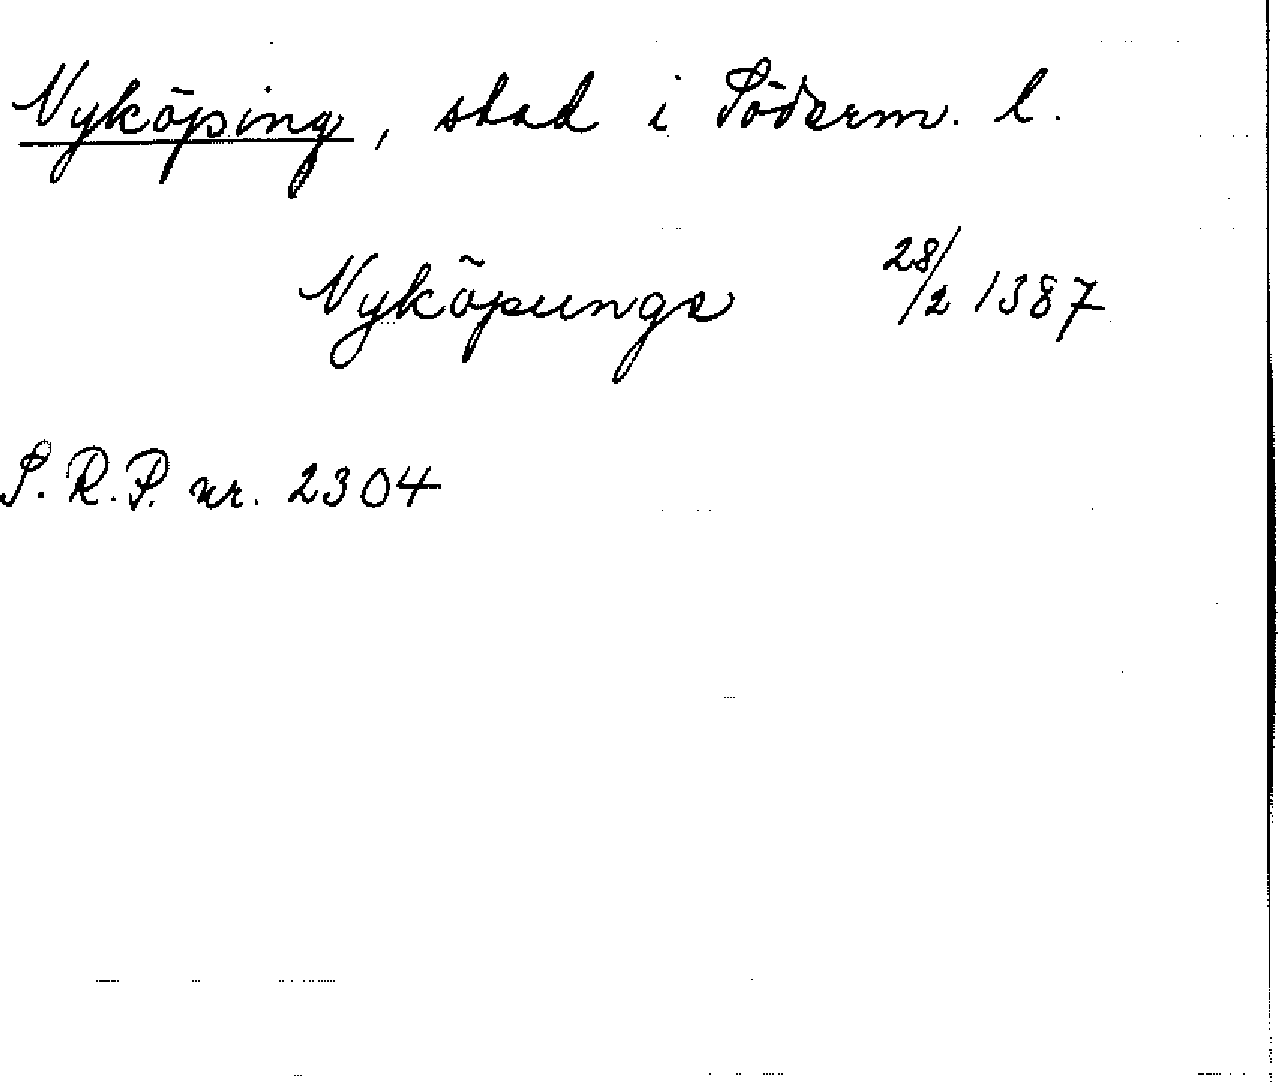 Nyköping, stad i Söderm. l.
Nyköpungs 28/2 1387
S.R.P. nr. 2304